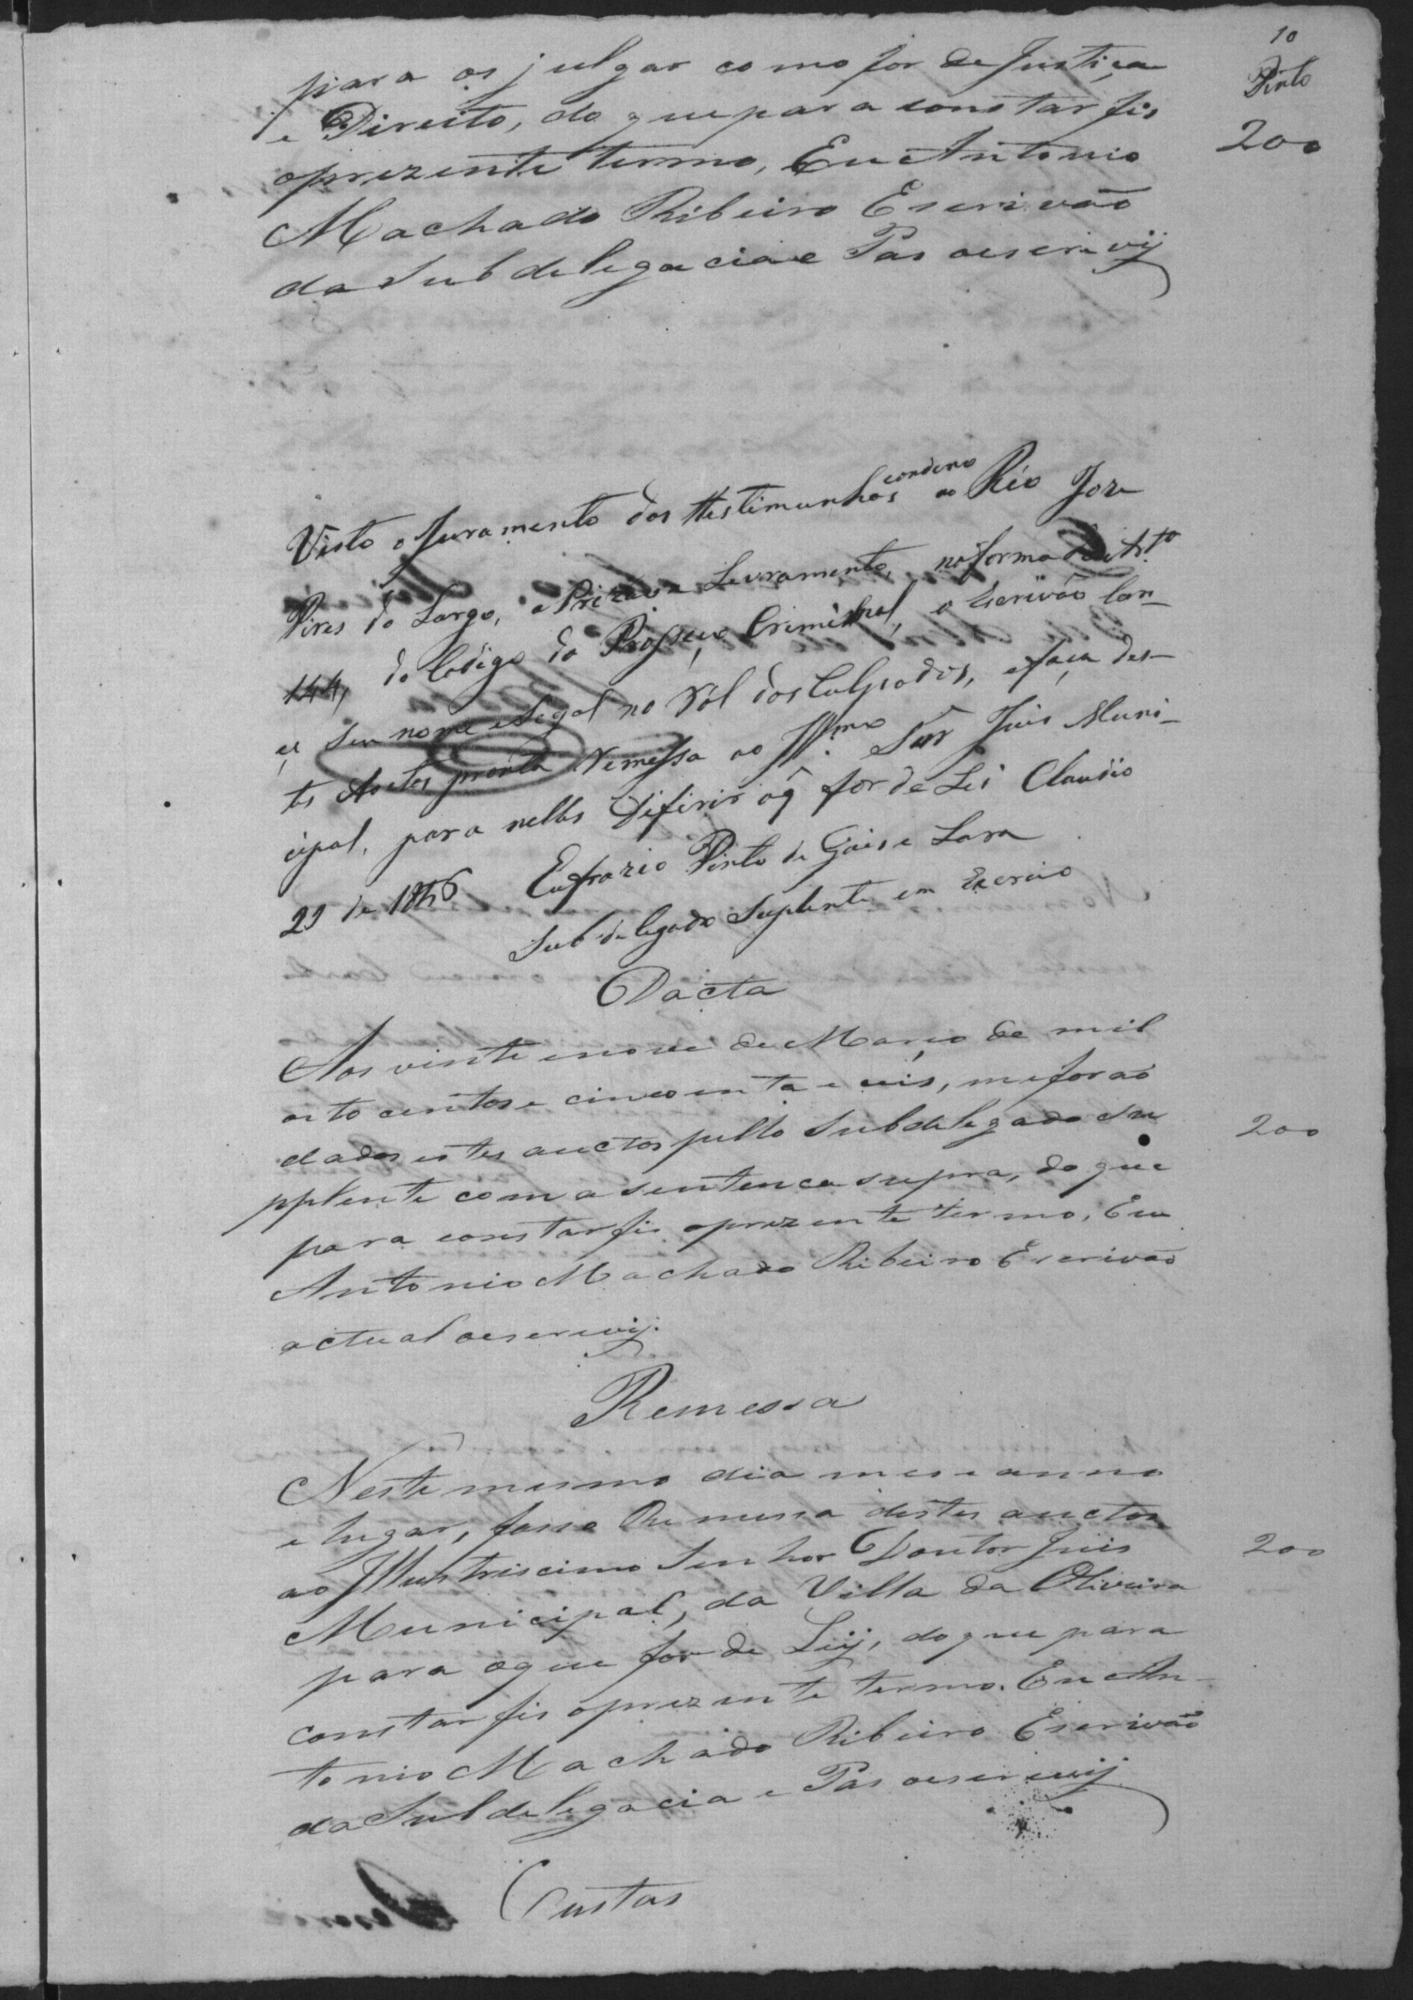 10
Pinto
para os julgar como for de Justiça
e Direito, do que para constar fis
oprezente termo, Eu Antonio
Machado Ribeiro Escrivão
da Subdelegacia e Pas oescrevij
200
Visto o Juramento das ttestimunhas condeno ao Réo Joze
Pires do Largo, a Prizão e Livramento, na forma do Art.to
144, do Codigo do Proseço Criminal, o Escrivão lan-
ça seu nome e Legal no Rol dos Culpados, e faça des-
tes Autos pronta Remessa ao Ill.mo Snr Juis Muni-
cipal, para nelles difirir oq̃ for de Lei Claudio
29 de 1856 Eufrazio Pinto de Gois e Lara
Subdelegado Suplente em Exercio
Dacta
Aos vinte enove de Março de mil
oito centos e cincoenta e seis, me forão
dados estes auctos pello Subdelegado Su
pplente com a sentenca supra, do que
para constar fis oprezente termo, Eu
Antonio Machado Ribeiro Escrivão
actual oescrevij.
200
Remessa
Neste mesmo dia mes e anno
e lugar, fasso Remessa destes auctos
ao Illustriscimo Senhor Doutor Juis
Municipal, da Villa da Oliveira
para oque for de Leij, do que para
constar fis oprezente termo. Eu An-
tonio Machado Ribeiro Escrivão
da Subdelegacia e Pas oescrevij
200
Custas